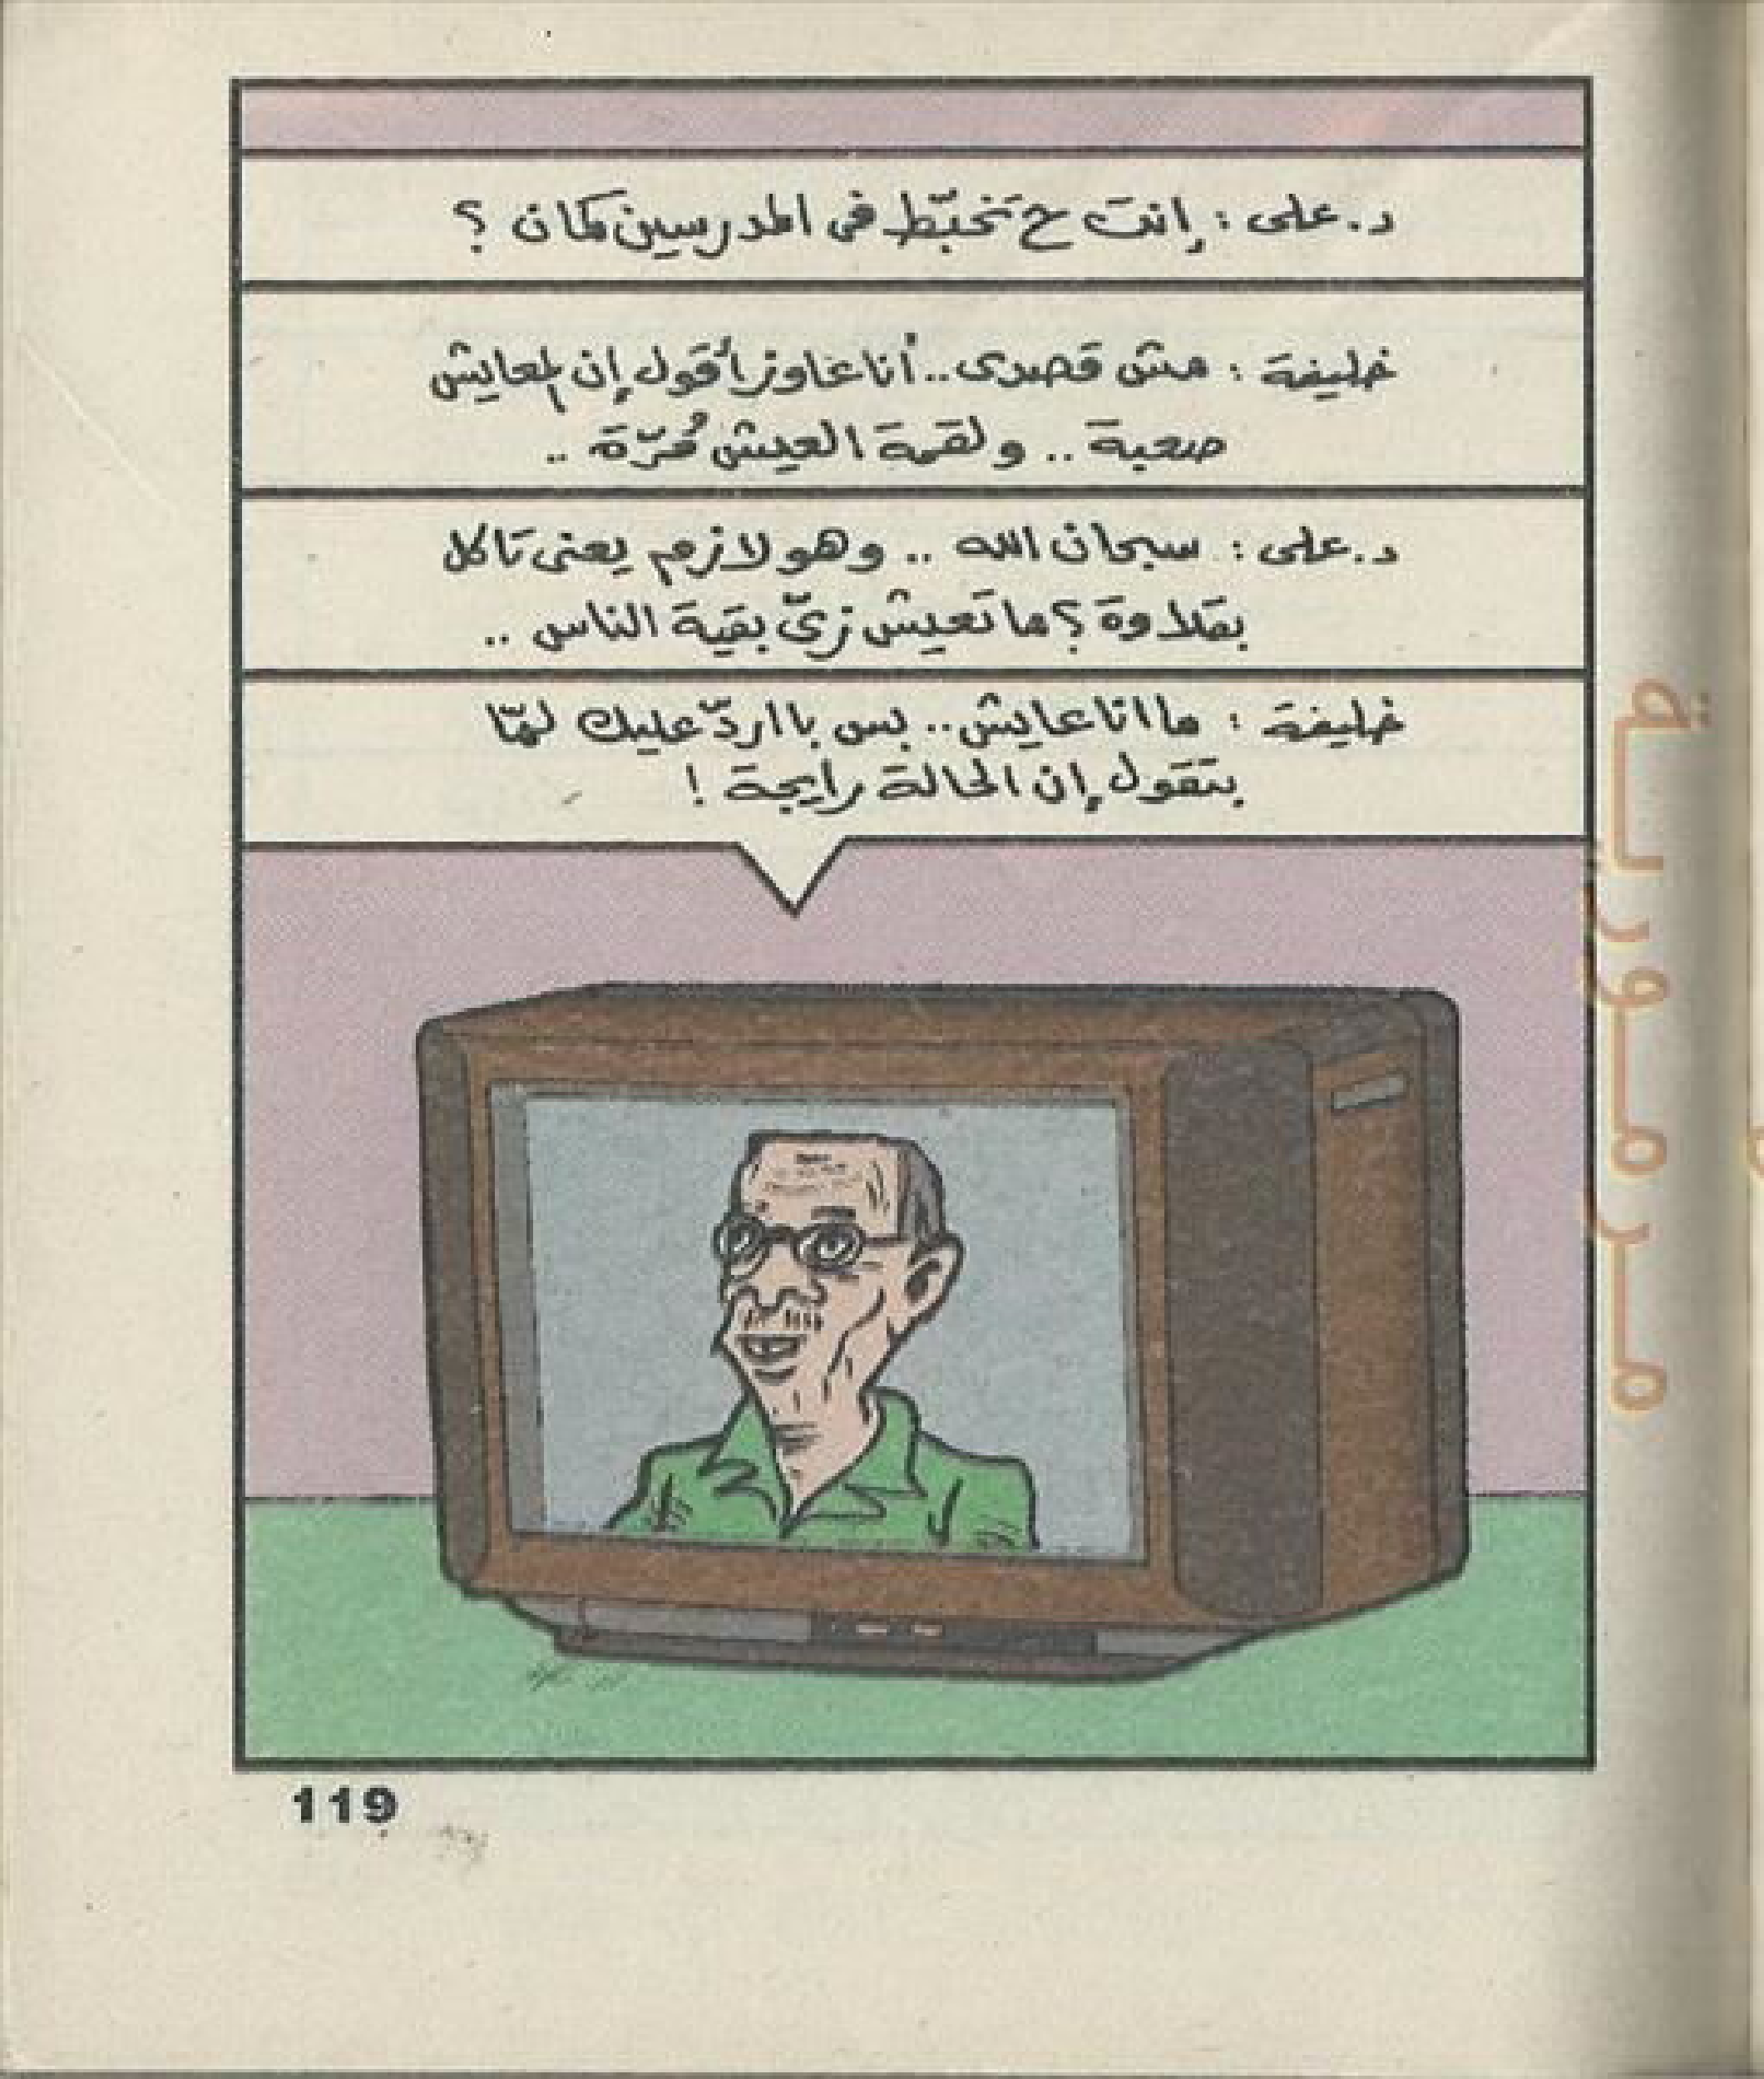 د. على : إنتَ ح تخبّط فى المدرسين كمان ؟
خليفة : مش قصدى .. أنا عاوز أقول إن المعايش
صعبة .. ولقمة العيش مُرّة ..
د. على : سبحان الله .. وهو لازم يعنى تاكل
بقلاوة ؟ ما تعيش زىّ بقية الناس ..
خليفة : ما انا عايش .. بس با اردّ عليك لمّا
بتقول إن الحالة رايجة !
مرمورية
119